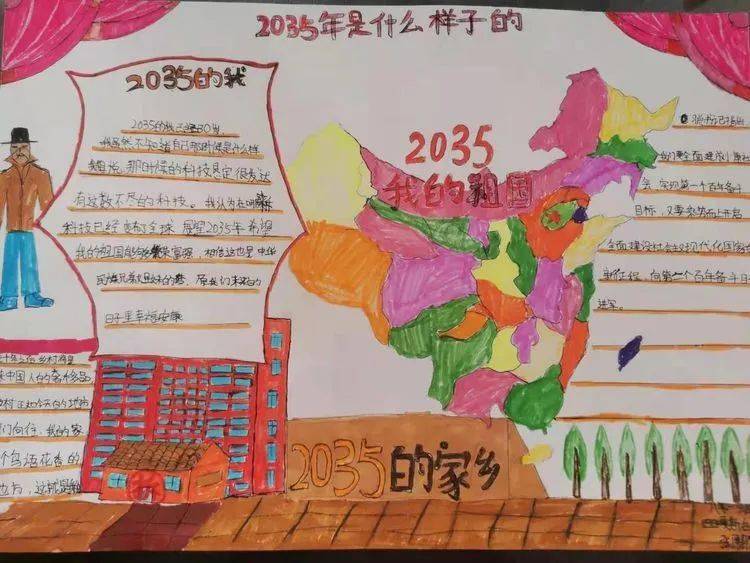 2035年是什么样子的
2035的我
2035的我已经30岁
我虽然不知道自己那时候是什么样
貌但我说,那时候的科技恳定很发达
有这数不尽的科技。我认为在明
科技已经 全球 展望2035年希望
我的祖国能够繁荣富强,相信这也是中华
民族 的梦,愿我们未来的
日子里幸福安康
2035
我的祖国
我们要全面建成小康社
会,实现第一个百年奋斗
目标,又要乘势而上开启
全面建设社会主义现代化国家
新征程,向第二个百年奋斗目
进军。
乡村
中国人的
村
们向往,我的家
个鸟语花香的
也方,这就是我
2035的家乡